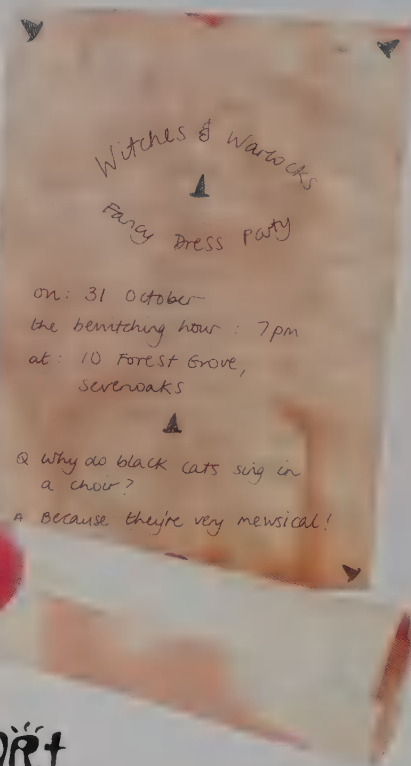 Witches & Warlocks
Fancy Dress Party
on: 31 October
the bewitching hour : 7pm
at: 10 Forest Grove,
Sevenoaks
Q Why do black cats sing in
a choir?
A Because they're very mewsical!